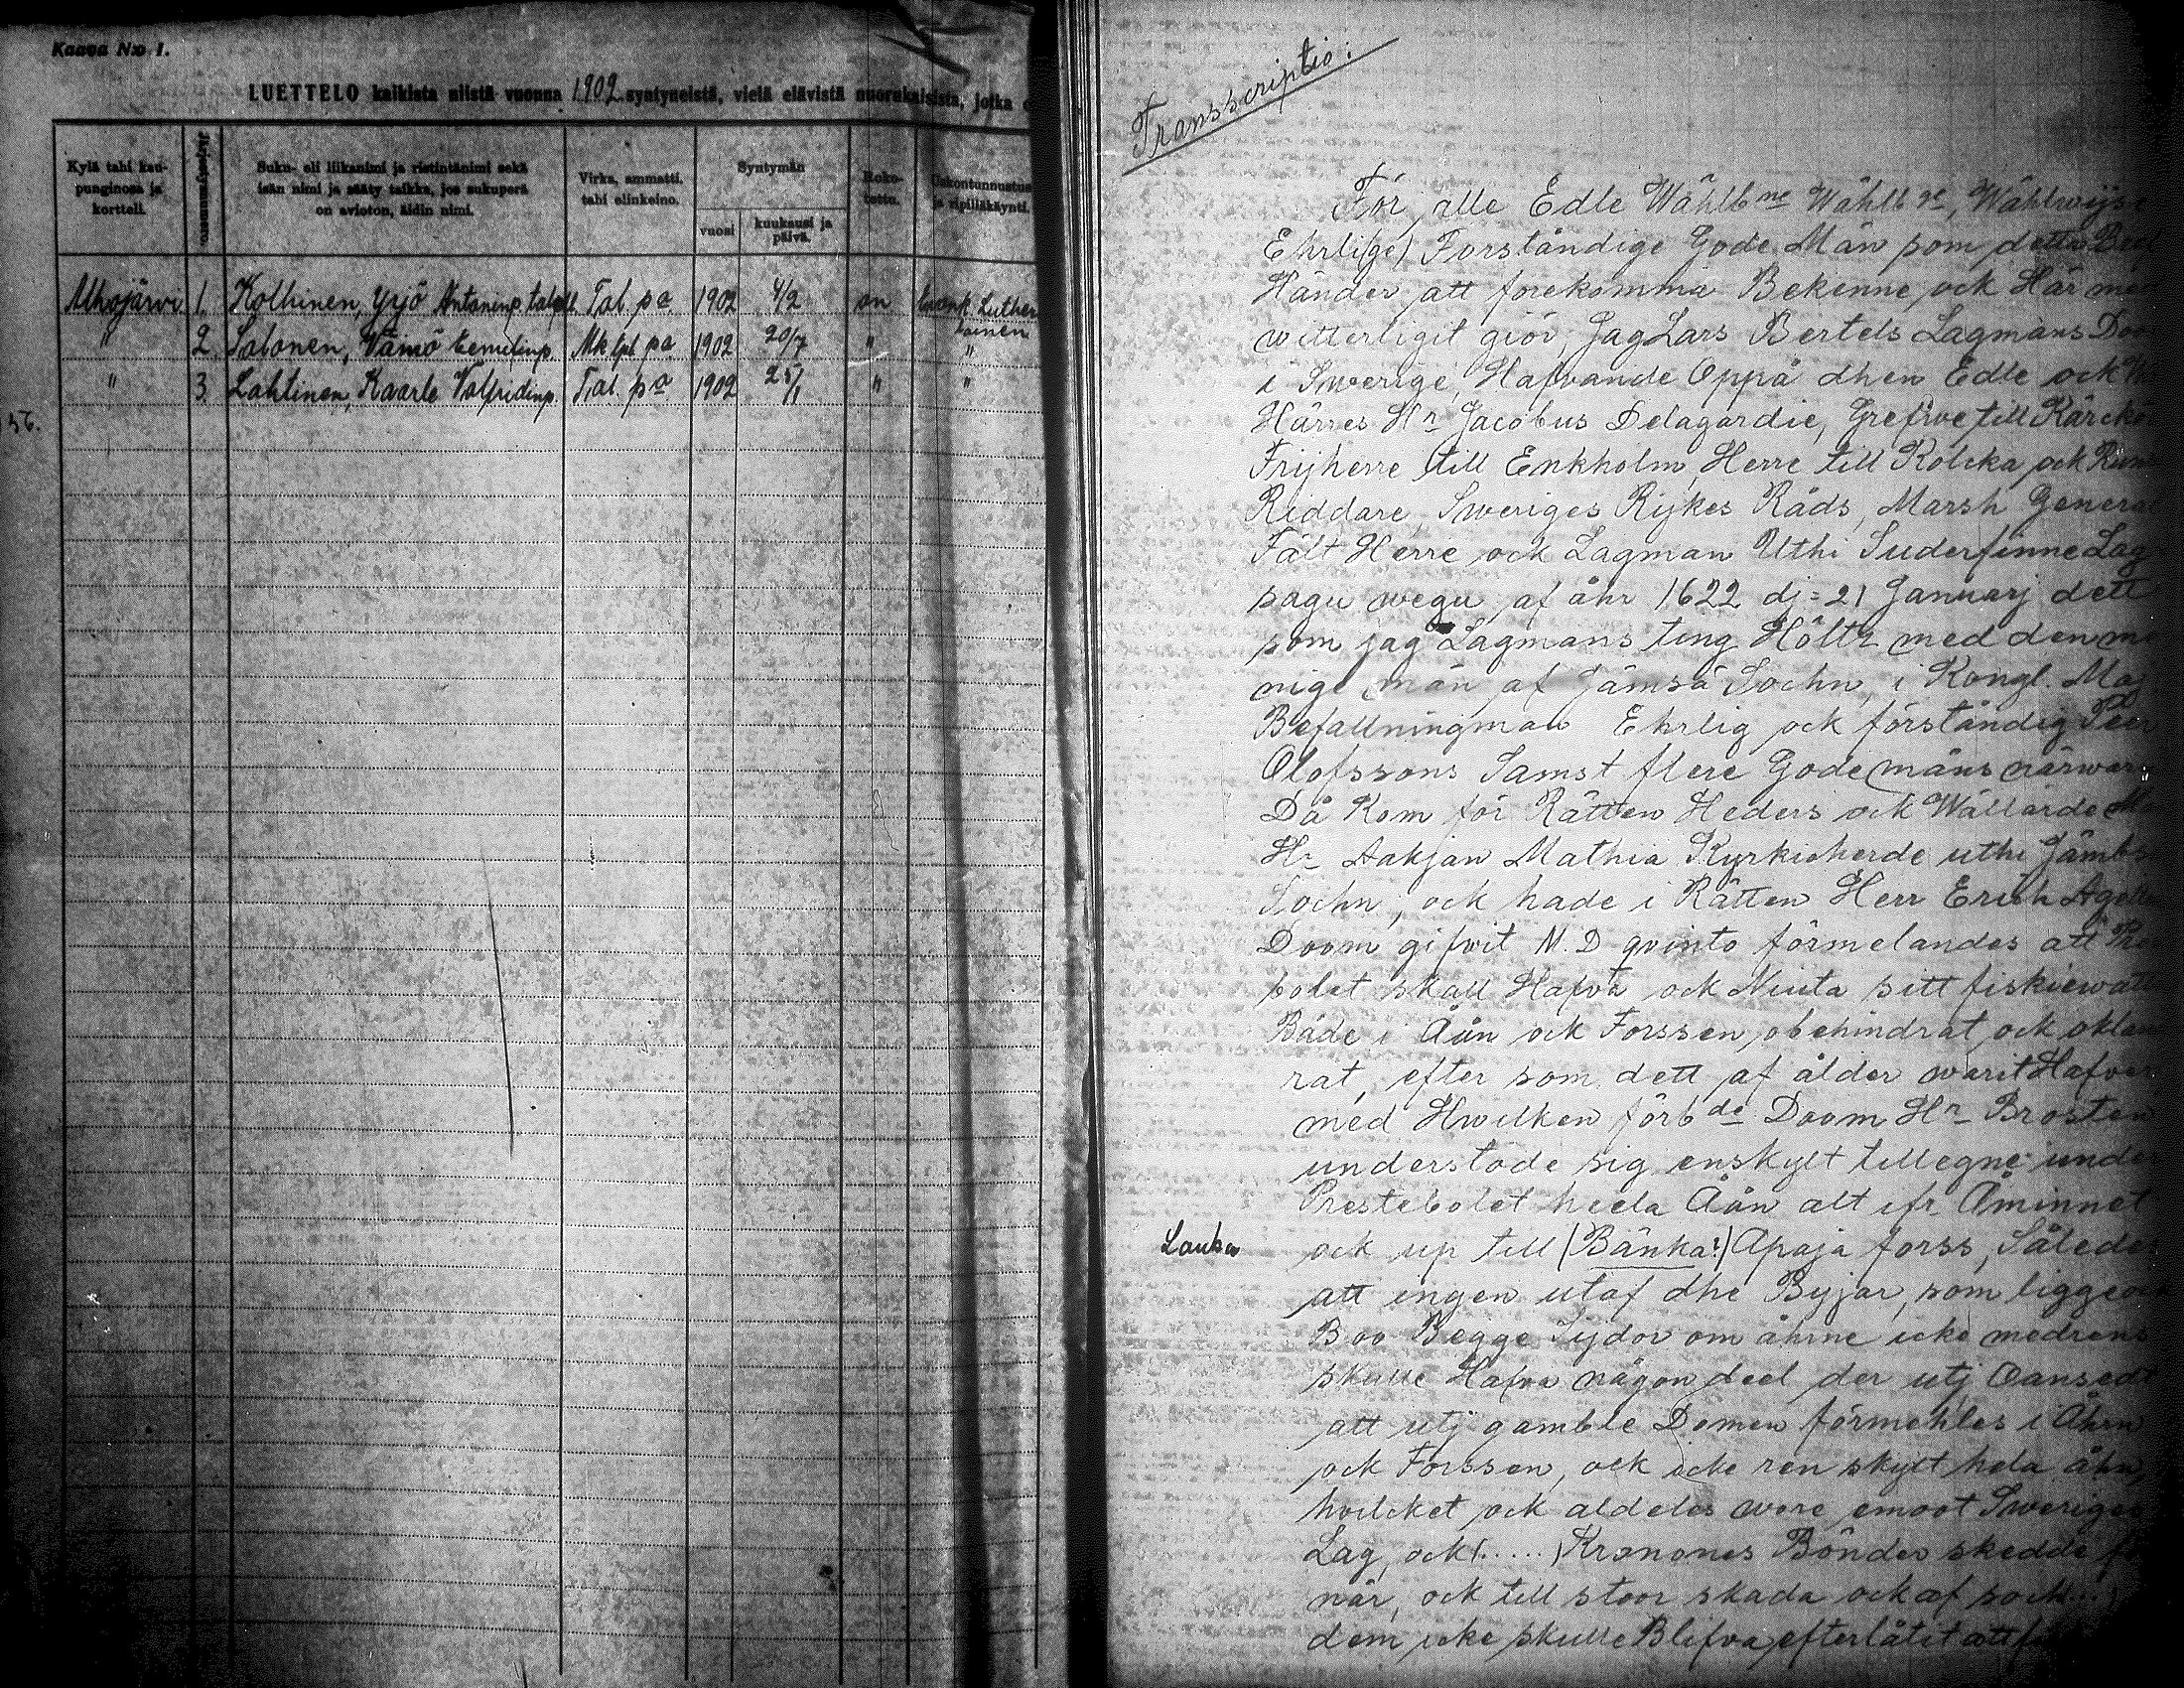 Kaava N:o 1.
LUETTELO kaikista niistä vuonna 1902 syntyneistä, vielä elävistä nuorukaisista, jotka
Kylä tahi kaupunginosa ja kortteli.
Järjestysnumero.
Suku- eli liikanimi ja ristintänimi sekä isän nimi ja sääty taikka, jos sukuperä on avioton, äidin nimi.
Virka, ammatti, tahi elinkeino.
Syntymän
vuosi
kuukausi ja päivä.
Rokotettu.
Uskontunnustus ja ripilläkäynti.
Alhojärvi 1. Kolhinen, Yrjö Antoninp. Tal. pa 1902 4/2 on Evank. Luther
lainen
" 2. Salonen, Väinö Eemelinp. pa 1902 20/7 " "
" 3. Lahtinen, Kaarle Valfridinp. Tal. pa 1902 25/1 " "
56.
Transscriptio:
För alle Edle Wählbne Wählb
Ehrli(ge) Forståndige Gode Män som detta
Händer att förekomma Bekenne ock Här
witterligit giör, Jag Lars Bertels Lagmans
i Swerige, Hafvande Oppå dhen Edle ock
Härres Hr Jacobus Delagardie, Grefwe till
Frijherre till Enkholm, Herre till Kolcka ock
Riddare, Sweriges Rijkes Råds, Marsh, General
Fält Herre ock Lagman Uthi Suderfinne Lag
sagu wegu af åhr 1622 dj = 21 Januarj dett
som jag Lagmans ting Höltz med den me
nige män af Jämsä Sochn, i Kongl. Maj
Befallningman Ehrlig ock förståndig
Olofssons Samst flere Gode mäns närwar
Då Kom för Rätten Heders ock Wällärde
Hr Aakjan Mathia Kyrkieherde uthi
Sochn, ock hade i Rätten Herr Erich
Doom gifwit M. D qvinto förmelandes att
bolet skall Hafva ock Niuta sitt fiskiewatt
Både i Åån ock Forssen, obehindrat ock okla
rat, efter som dett af ålder warit Hafver
med Hwilken förbde Doom Hr Brosten
understode sig enskylt tillegne under
Prestebolet heela Åån alt ifr Åminnet
Lauka ock up till (Bänka?) Apaja forss, Således
att ingen utaf dhe Byjar, som ligge
Boo Begge Sydor om åhrne icke
skulle Hafva någon deel der utj
att utj gamble Domen förmehles i Åhrn
ock Forssen, ock icke ren skylt hela åhn,
hvilcket ock aldeles wore emoot Sweriges
Lag, ock (.....) Kronones Bönder skedde
när, ock till stoor skada ock af
dem icke skulle Blifva efterlåtit att